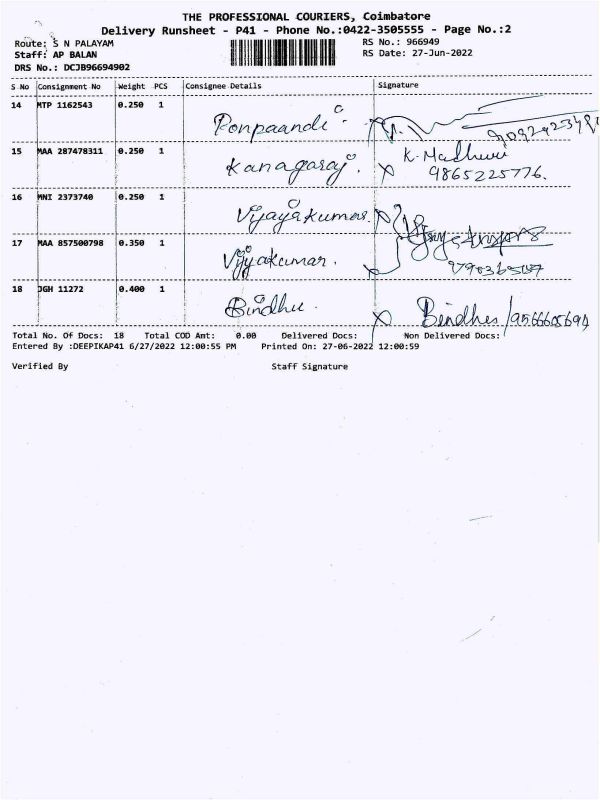 THE PROFESSIONAL COURIERS, Coimbatore
Delivery Runsheet - P41 - Phone No.:0422-3505555 - Page No.:2
Route: S N PALAYAM RS No.: 966949
Staff: AP BALAN RS Date: 27-Jun-2022
DRS No.: DCJB96694902
S No Consignment No Weight PCS Consignee Details Signature
14 MTP 1162543 0.250 1
Ponpaandi
15 MAA 287478311 0.250 1 K. Madhuvi
Kanagaraj. 9865225776.
16 MNI 2373740 0.250 1
Vijayakumar.
17 MAA 857500798 0.350 1
Vijyakumar.
18 JGH 11272 0.400 1
Bindhu. Bindhu /9566605694
Total No. Of Docs: 18 Total COD Amt: 0.00 Delivered Docs: Non Delivered Docs:
Entered By :DEEPIKAP41 6/27/2022 12:00:55 PM Printed On: 27-06-2022 12:00:59
Verified By Staff Signature